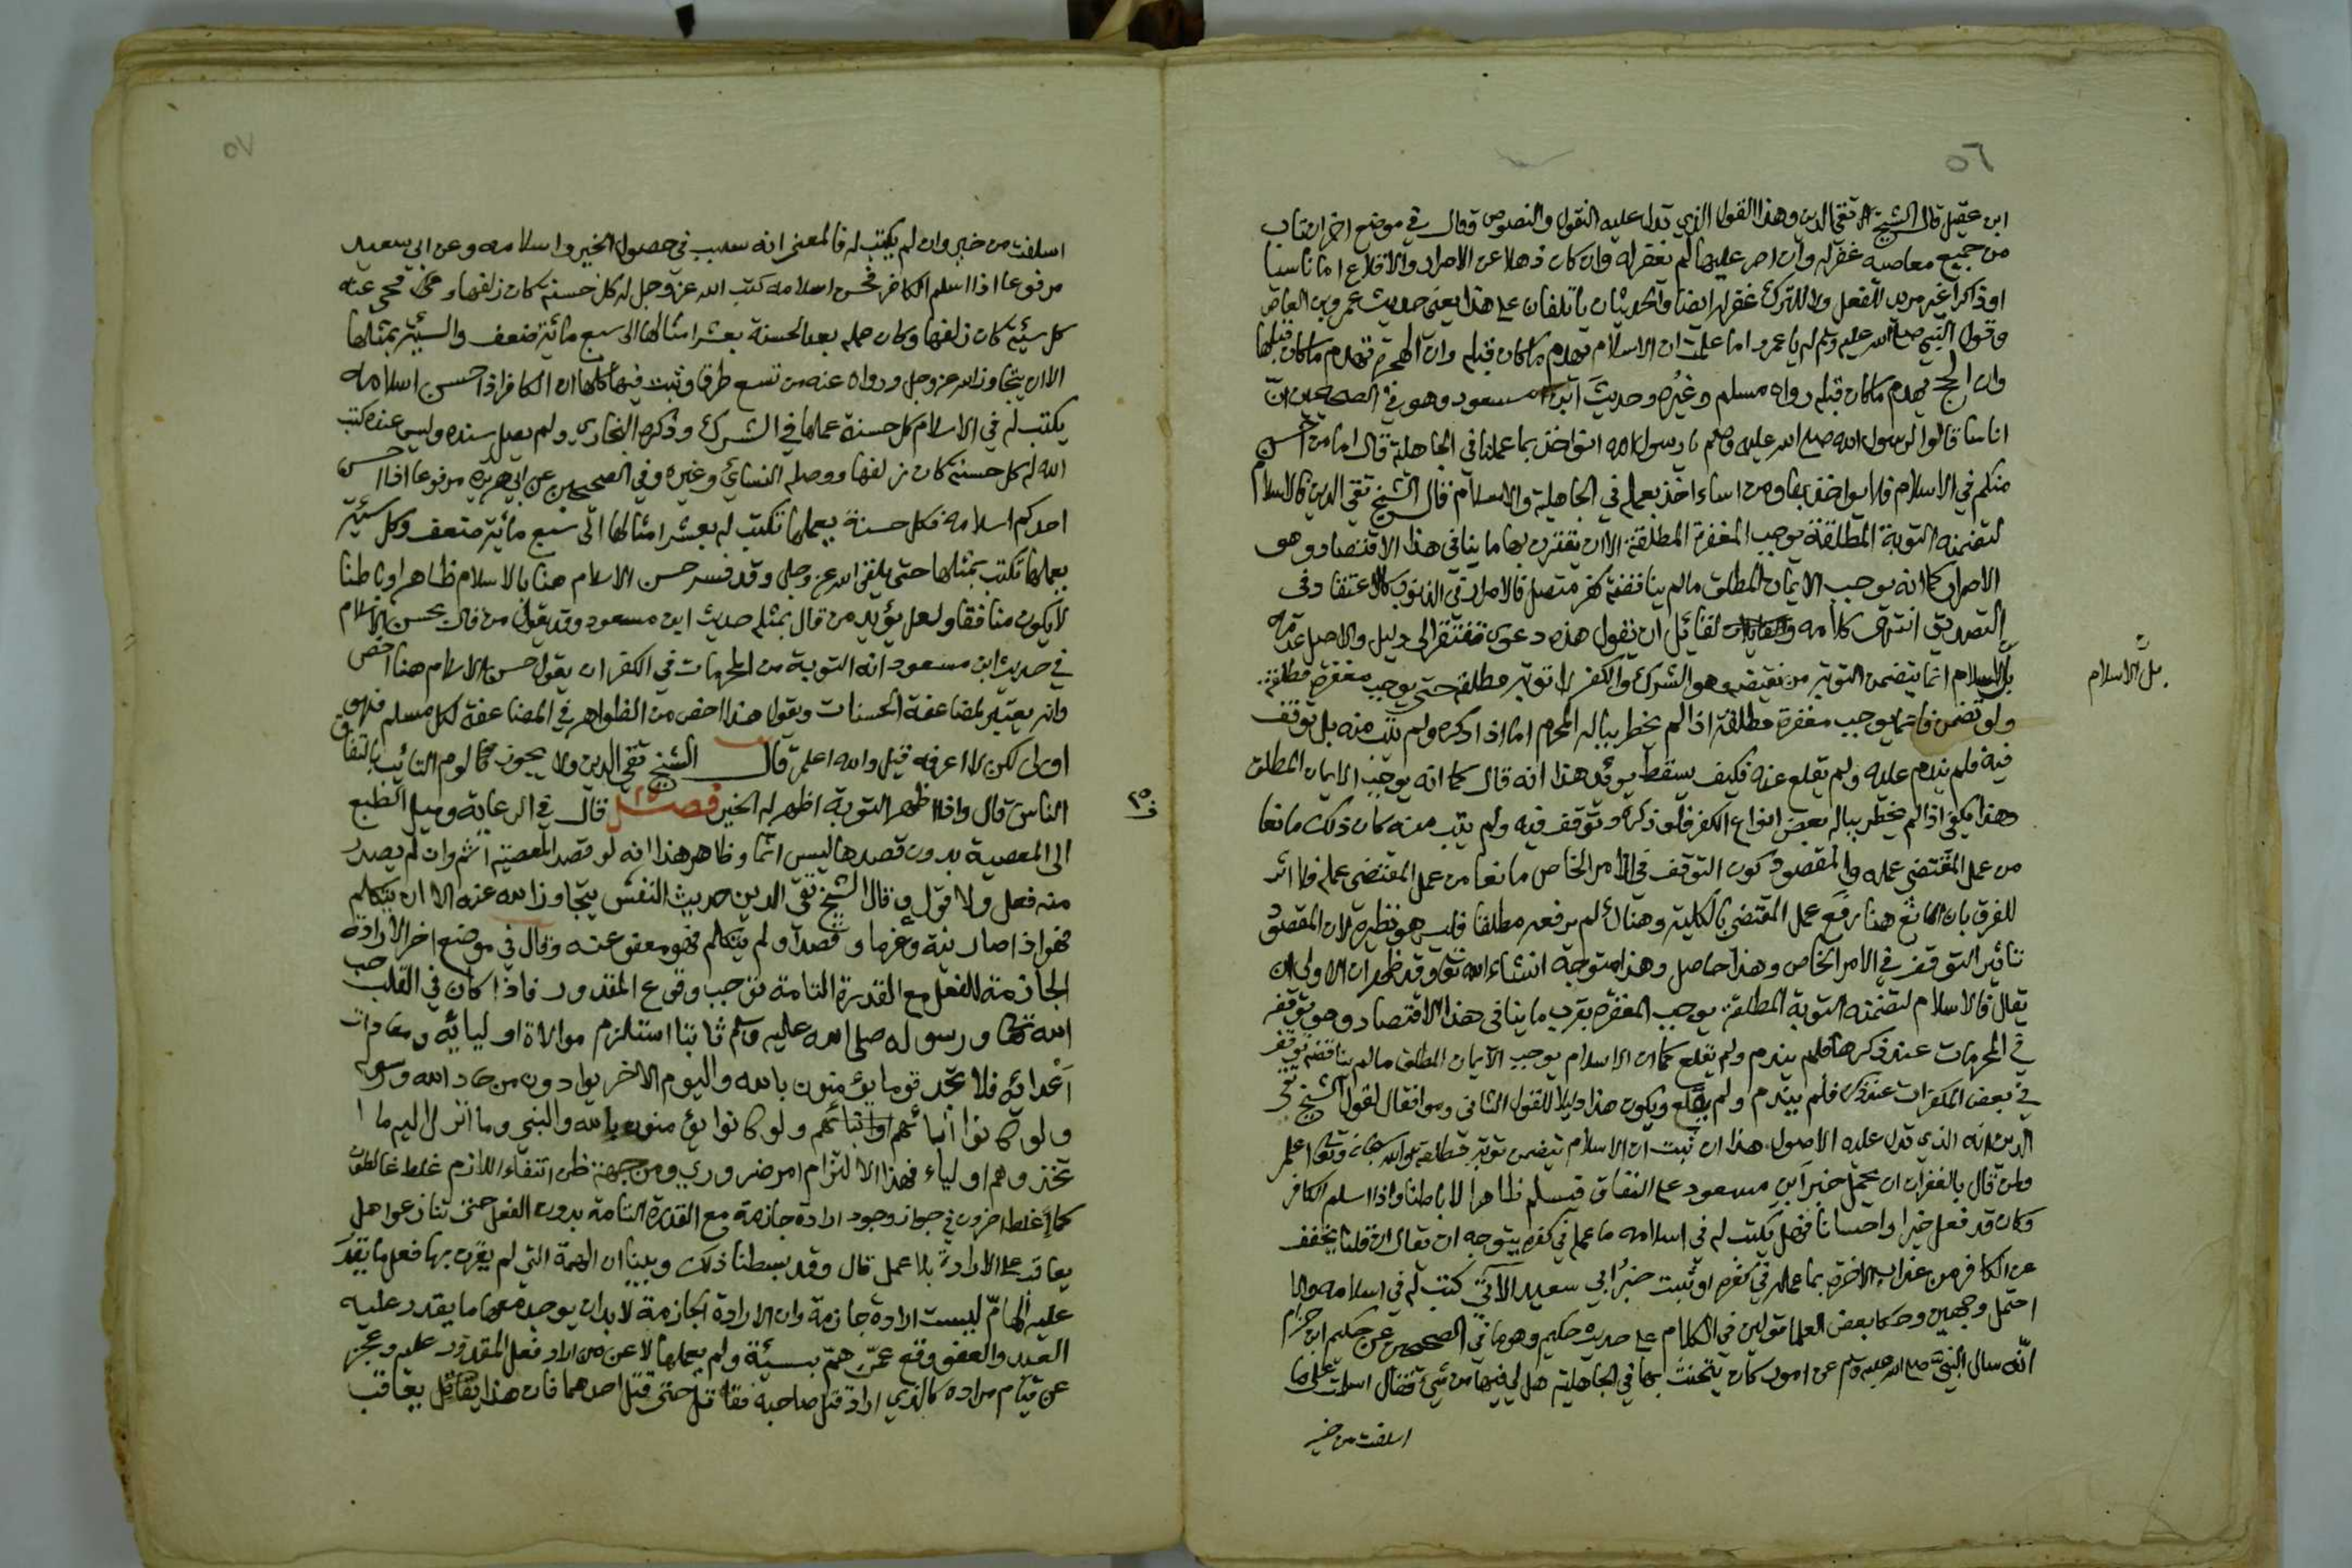 ٥٦
ابن عقيل قال الشيخ تقي الدين وهذا القول الذي تدل عليه النقول والنصوص وقال في موضع اخر ان تاب
من جميع معاصيه غفر له وان اصر عليها لم يغفر له وان كان ذهلا عن الاصرار والاقلاع اما ناسيا
او ذاكرا غير مريد للفعل ولا للترك غفر له ايضا والحديثان ياتلفان على هذا يعني حديث عمرو بن العاص
وقول النبي صلى الله عليه وسلم له يا عمرو اما علمت ان الاسلام تهدم ما كان قبله وان الهجرة تهدم ما كان قبلها
وان الحج يهدم ما كان قبله رواه مسلم وغيره وحديث ابن مسعود وهو في الصحيحين ان
اناسا قالوا لرسول الله صلى الله عليه وسلم يا رسول الله انواخذ بما عملنا في الجاهلية قال اما من احسن
منكم في الاسلام فلا يواخذ بها ومن اساء اخذ بعمله في الجاهلية والاسلام فقال الشيخ تقي الدين فالاسلام
لتضمنه التوبة المطلقة يوجب المغفرة المطلقة الا ان يقترن بها ما ينافي هذا الاقتضاء وهو
الاصرار كما انه يوجب الايمان المطلق ما لم يناقضه كفر متصل فالاصرار في الذنوب كالاعتقاد في
التصديق انتهى كلامه ولقائل ان يقول هذه دعوى تفتقر الى دليل والاصل عدمه
بل الاسلام انما يتضمن التوبة من نقيضه وهو الشرك والكفر لا توبة مطلقة حتى يوجب مغفرة مطلقة
بل الاسلام
ولو تضمن فانما يوجب مغفرة مطلقة اذا لم يخطر بباله المحرم اما اذا ذكره ولم يتب منه بل توقف
فيه فلم يندم عليه ولم يقلع عنه فكيف يسقط يوئد هذا انه قال كما انه يوجب الايمان المطلق
وهذا يكفي اذا لم يخطر بباله بعض انواع الكفر فلو ذكره وتوقف فيه ولم يتب منه كان ذلك مانعا
من عمل المقتضي عمله والمقصود كون التوقف في الامر الخاص مانعا من عمل المقتضي عمله فلا اثر
للفرق بان المانع هنا رفع عمل المقتضي بالكلية وهناك لم يرفعه مطلقا فليس هو نظيره لان المقصود
تاثير التوقف في الامر الخاص وهذا حاصل وهذا متوجه انشاء الله تعالى وقد ظهر ان الاولى ان
يقال فالاسلام لتضمنه التوبة المطلقة يوجب المغفرة بقرب ما ينافي هذا الاقتضاء وهو توقفه
في المحرمات عند ذكرها فلم يندم ولم يقلع كما ان الاسلام يوجب الايمان المطلق ما لم يناقضه توقفه
في بعض المكفرات عند ذكره فلم يندم ولم يقلع ويكون هذا دليلا للقول الثاني وموافقا لقول الشيخ تقي
الدين انه الذي تدل عليه الاصول هذا ان ثبت ان الاسلام يتضمن توبة مطلقة والله سبحانه وتعالى اعلم
ولمن قال بالغفران ان يحمل خبر ابن مسعود على النفاق فيسلم ظاهرا لا باطنا واذا اسلم الكافر
وكان قد فعل خيرا واحسانا فهل يكتب له في اسلامه ما عمله في كفره يتوجه ان يقال ان قلنا يخفف
عن الكافر من عذاب الاخرة بما عمله في كفره او ثبت خبر ابي سعيد الاتي كتب له في اسلامه والا
احتمل وجهين وحكا بعض العلما قولين في الكلام على حديث حكيم وهو ما في الصحيحين عن حكيم ابن حزام
انه سال النبي صلى الله عليه وسلم عن امور كان يتحنث بها في الجاهلية هل لي فيها من شيء فقال اسلمت على ما
اسلفت من خير
٥٧
اسلفت من خير وان لم يكتب له فالمعنى انه سبب في حصول الخير واسلامه وعن ابي سعيد
مرفوعا اذا اسلم الكافر فحسن اسلامه كتب الله عز وجل له كل حسنة كان زلفها ومحي عنه
كل سيئة كان زلفها وكان عمله بعد الحسنة بعشر امثالها الى سبع مائة ضعف والسيئة بمثلها
الا ان يتجاوز الله عز وجل ورواه عنه من تسع طرق وثبت فيها كلها ان الكافر اذا حسن اسلامه
يكتب له في الاسلام كل حسنة عملها في الشرك وذكره البخاري ولم يصل سنده وليس عنده كتب
الله له كل حسنة كان زلفها ووصله النسائي وغيره وفي الصحيحين عن ابي هريرة مرفوعا اذا احسن
احدكم اسلامه فكل حسنة يعملها تكتب له بعشر امثالها الى سبع مائة ضعف وكل سيئة
يعملها تكتب بمثلها حتى يلقى الله عز وجل وقد فسر حسن الاسلام هنا بالاسلام ظاهرا وباطنا
لا يكون منافقا ولعل يؤيد من قال بمثله حديث ابن مسعود وقد يقول من قال بحسن الاسلام
في حديث ابن مسعود انه التوبة من المحرمات في الكفر ان يقول حسن الاسلام هنا اخص
وانه يعتبر لمضاعفة الحسنات ويقول هذا اخص من الظواهر في المضاعفة لكل مسلم فهو
اولى لكن لا اعرفه قيل والله اعلم قال الشيخ تقي الدين ولا يجوز لوم التائب باتفاق
الناس قال واذا اظهر التوبة اظهر له الخير فصل قال في الرعاية وميل الطبع
٢٥
ف
الى المعصية بدون قصدها ليس اثما وظاهر هذا انه لو قصد المعصية اثم وان لم يصدر
منه فعل ولا قول وقال الشيخ تقي الدين حديث النفس يتجاوز الله عنه الا ان يتكلم
فهو اذا صار نية وعزما وقصدا ولم يتكلم فهو معفو عنه وقال في موضع اخر الارادة
الجازمة للفعل مع القدرة التامة توجب وقوع المقدور فاذا كان في القلب حب
الله تعالى ورسوله صلى الله عليه وسلم ثابتا استلزم موالاة اوليائه ومعادات
اعدائه فلا تجد قوما يؤمنون بالله واليوم الاخر يوادون من حاد الله ورسوله
ولو كانوا ابائهم او ابنائهم ولو كانوا يؤمنون بالله والنبي وما انزل اليه ما ا
تخذوهم اولياء فهذا الالتزام امر ضروري ومن جهة ظن انتفاء اللازم غلط غالطون
كما غلط اخرون في جواز وجود ارادة جازمة مع القدرة التامة بدون الفعل حتى تنازعوا هل
يعاقب على الارادة بلا عمل قال وقد بسطنا ذلك وبينا ان الهمة التي لم يقترن بها فعل ما يقدر
عليه الهام ليست ارادة جازمة وان الارادة الجازمة لا بد ان يوجد معها ما يقدر عليه
العبد والعفو وقع عمن هم بسيئة ولم يعملها لا عن من اراد فعل المقدور عليه وعجز
عن تمام مراده كالذي اراد قتل صاحبه فقاتل حتى قتل احدهما فان هذا يعاقب